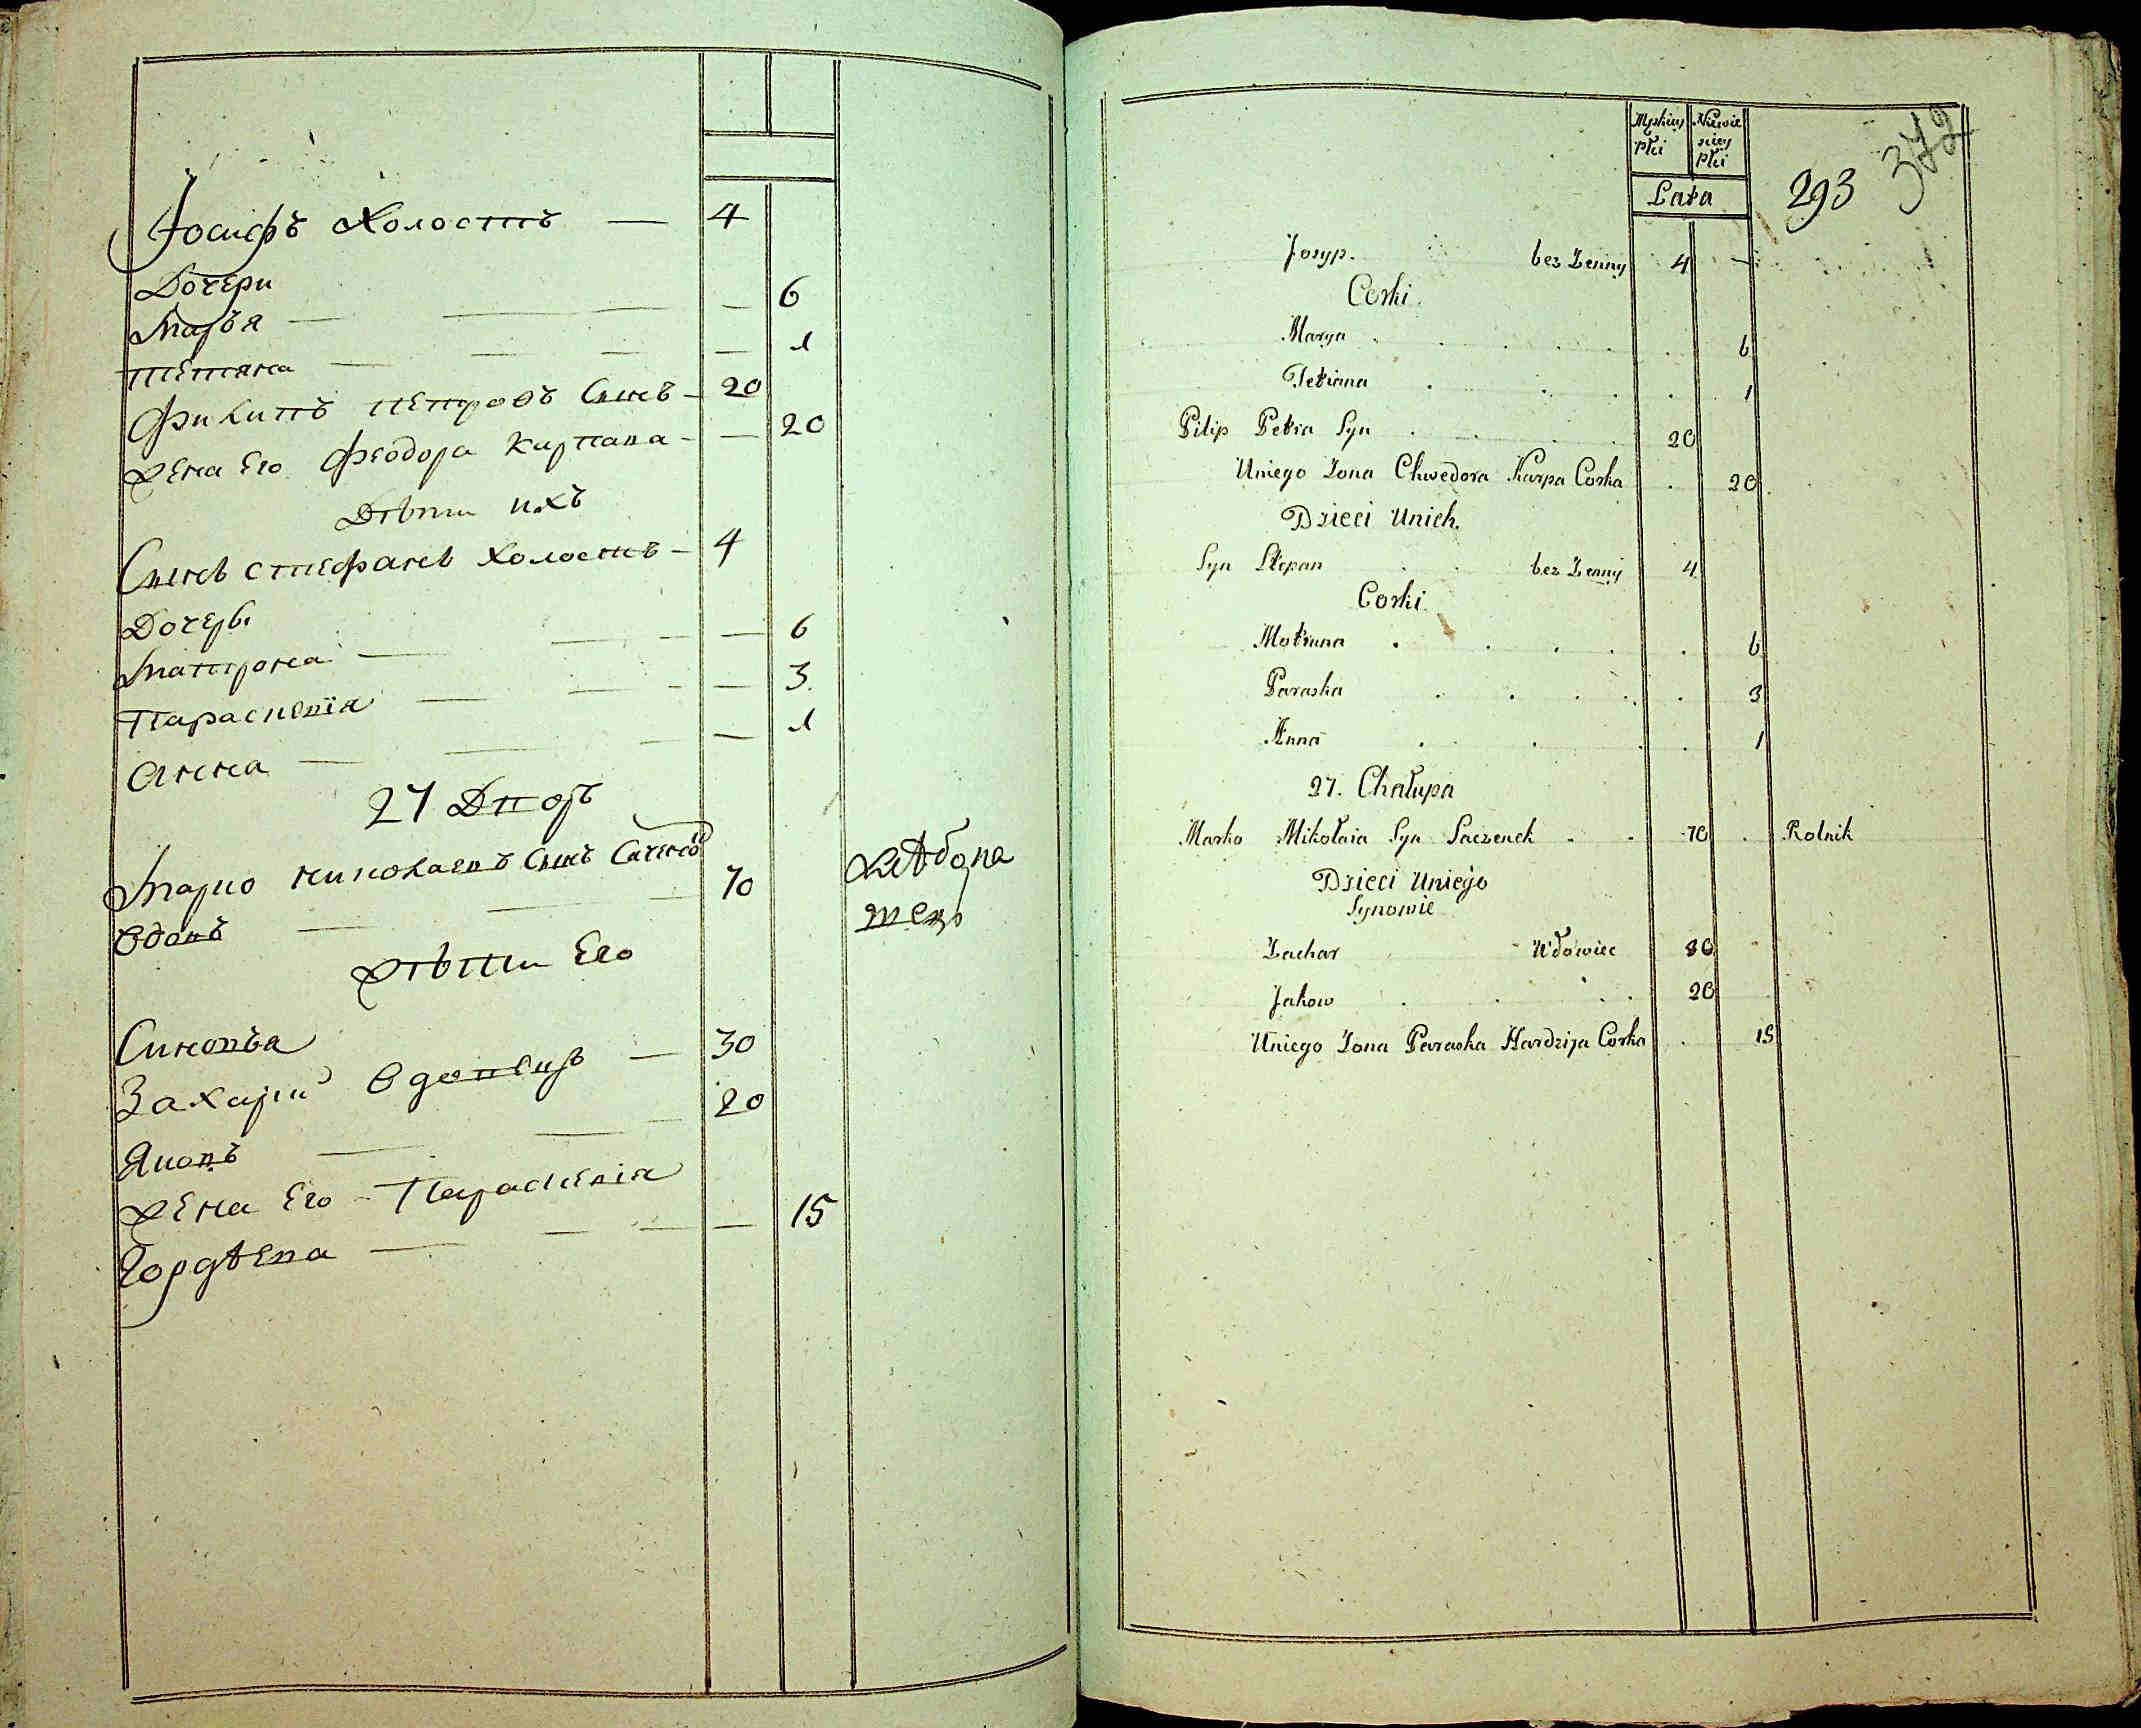 Іосифъ Холостъ — 4
Дочери
Марья — — — — 6
Тетяна — — — — 1
Филипъ Петровъ Сынъ — 20
Жена Его Феодора Карпава — — 20
Дѣти ихъ
Сынъ Стефанъ Холостъ — 4
Дочеры
Матрона — — — — 6
Параскевія — — — — 3
Анна — — — — 1
27 Дворъ
Марко Николаевъ Сынъ
Вдовъ — — — 70
Хлѣбопа
шецъ
Дѣти Его
Синовъя
Захарій Вдовецъ — 30
Яковъ — — — 20
Жена Его Параскевія
Гордѣева — — — — 15
Męskiey Płci
Niewieściey Płci
Lata
293
372
Josyp. bez Żenny 4
Corki
Marya 6
Tetiana 1
Pilip Petra Syn 20
Uniego Żona Chwedora Karpa Corka 20
Dzieci Unich.
Syn Stepan bez Żenny 4
Corki
Motruna 6
Paraska 3
Anna 1
27. Chałupa
Marko Mikołaia Syn Saczenek 70 Rolnik
Dzieci Uniego
Synowie
Zachar Wdowiec 30
Jakow 20
Uniego Żona Paraska Hardzija Corka 15